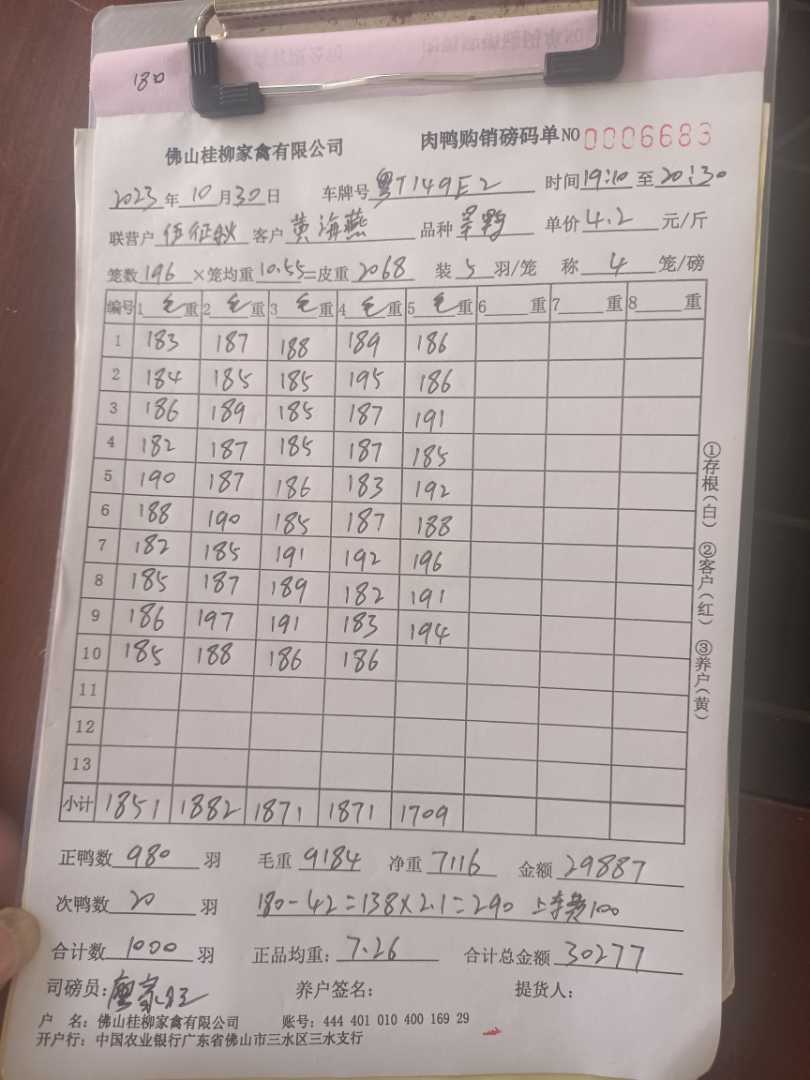 180
佛山桂柳家禽有限公司 肉鸭购销磅码单 NO 0006683
2023年10月30日 车牌号 粤T149E2 时间 19:10 至 20:30
联营户 伍征 客户 黄海燕 品种 单价 4.2 元/斤
笼数 196 ×笼均重 10.55 =皮重 2068 装 5 羽/笼 称 4 笼/磅
编号 1 毛 重 2 毛 重 3 毛 重 4 毛 重 5 毛 重 6 重 7 重 8 重
1 183 187 188 189 186
2 184 185 185 195 186
3 186 189 185 187 191
4 182 187 185 187 185
5 190 187 186 183 192
6 188 190 185 187 188
7 182 185 191 192 196
8 185 187 189 182 191
9 186 197 191 183 194
10 185 188 186 186
11
12
13
小计 1851 1882 1871 1871 1709
正鸭数 980 羽 毛重 9184 净重 7116 金额 29887
次鸭数 20 羽 180-42=138×2.1=290 上车费100
合计数 1000 羽 正品均重: 7.26 合计总金额 30277
司磅员: 家 养户签名: 提货人:
户 名: 佛山桂柳家禽有限公司 账号: 444 401 010 400 169 29
开户行: 中国农业银行广东省佛山市三水区三水支行
①存根(白) ②客户(红) ③养户(黄)